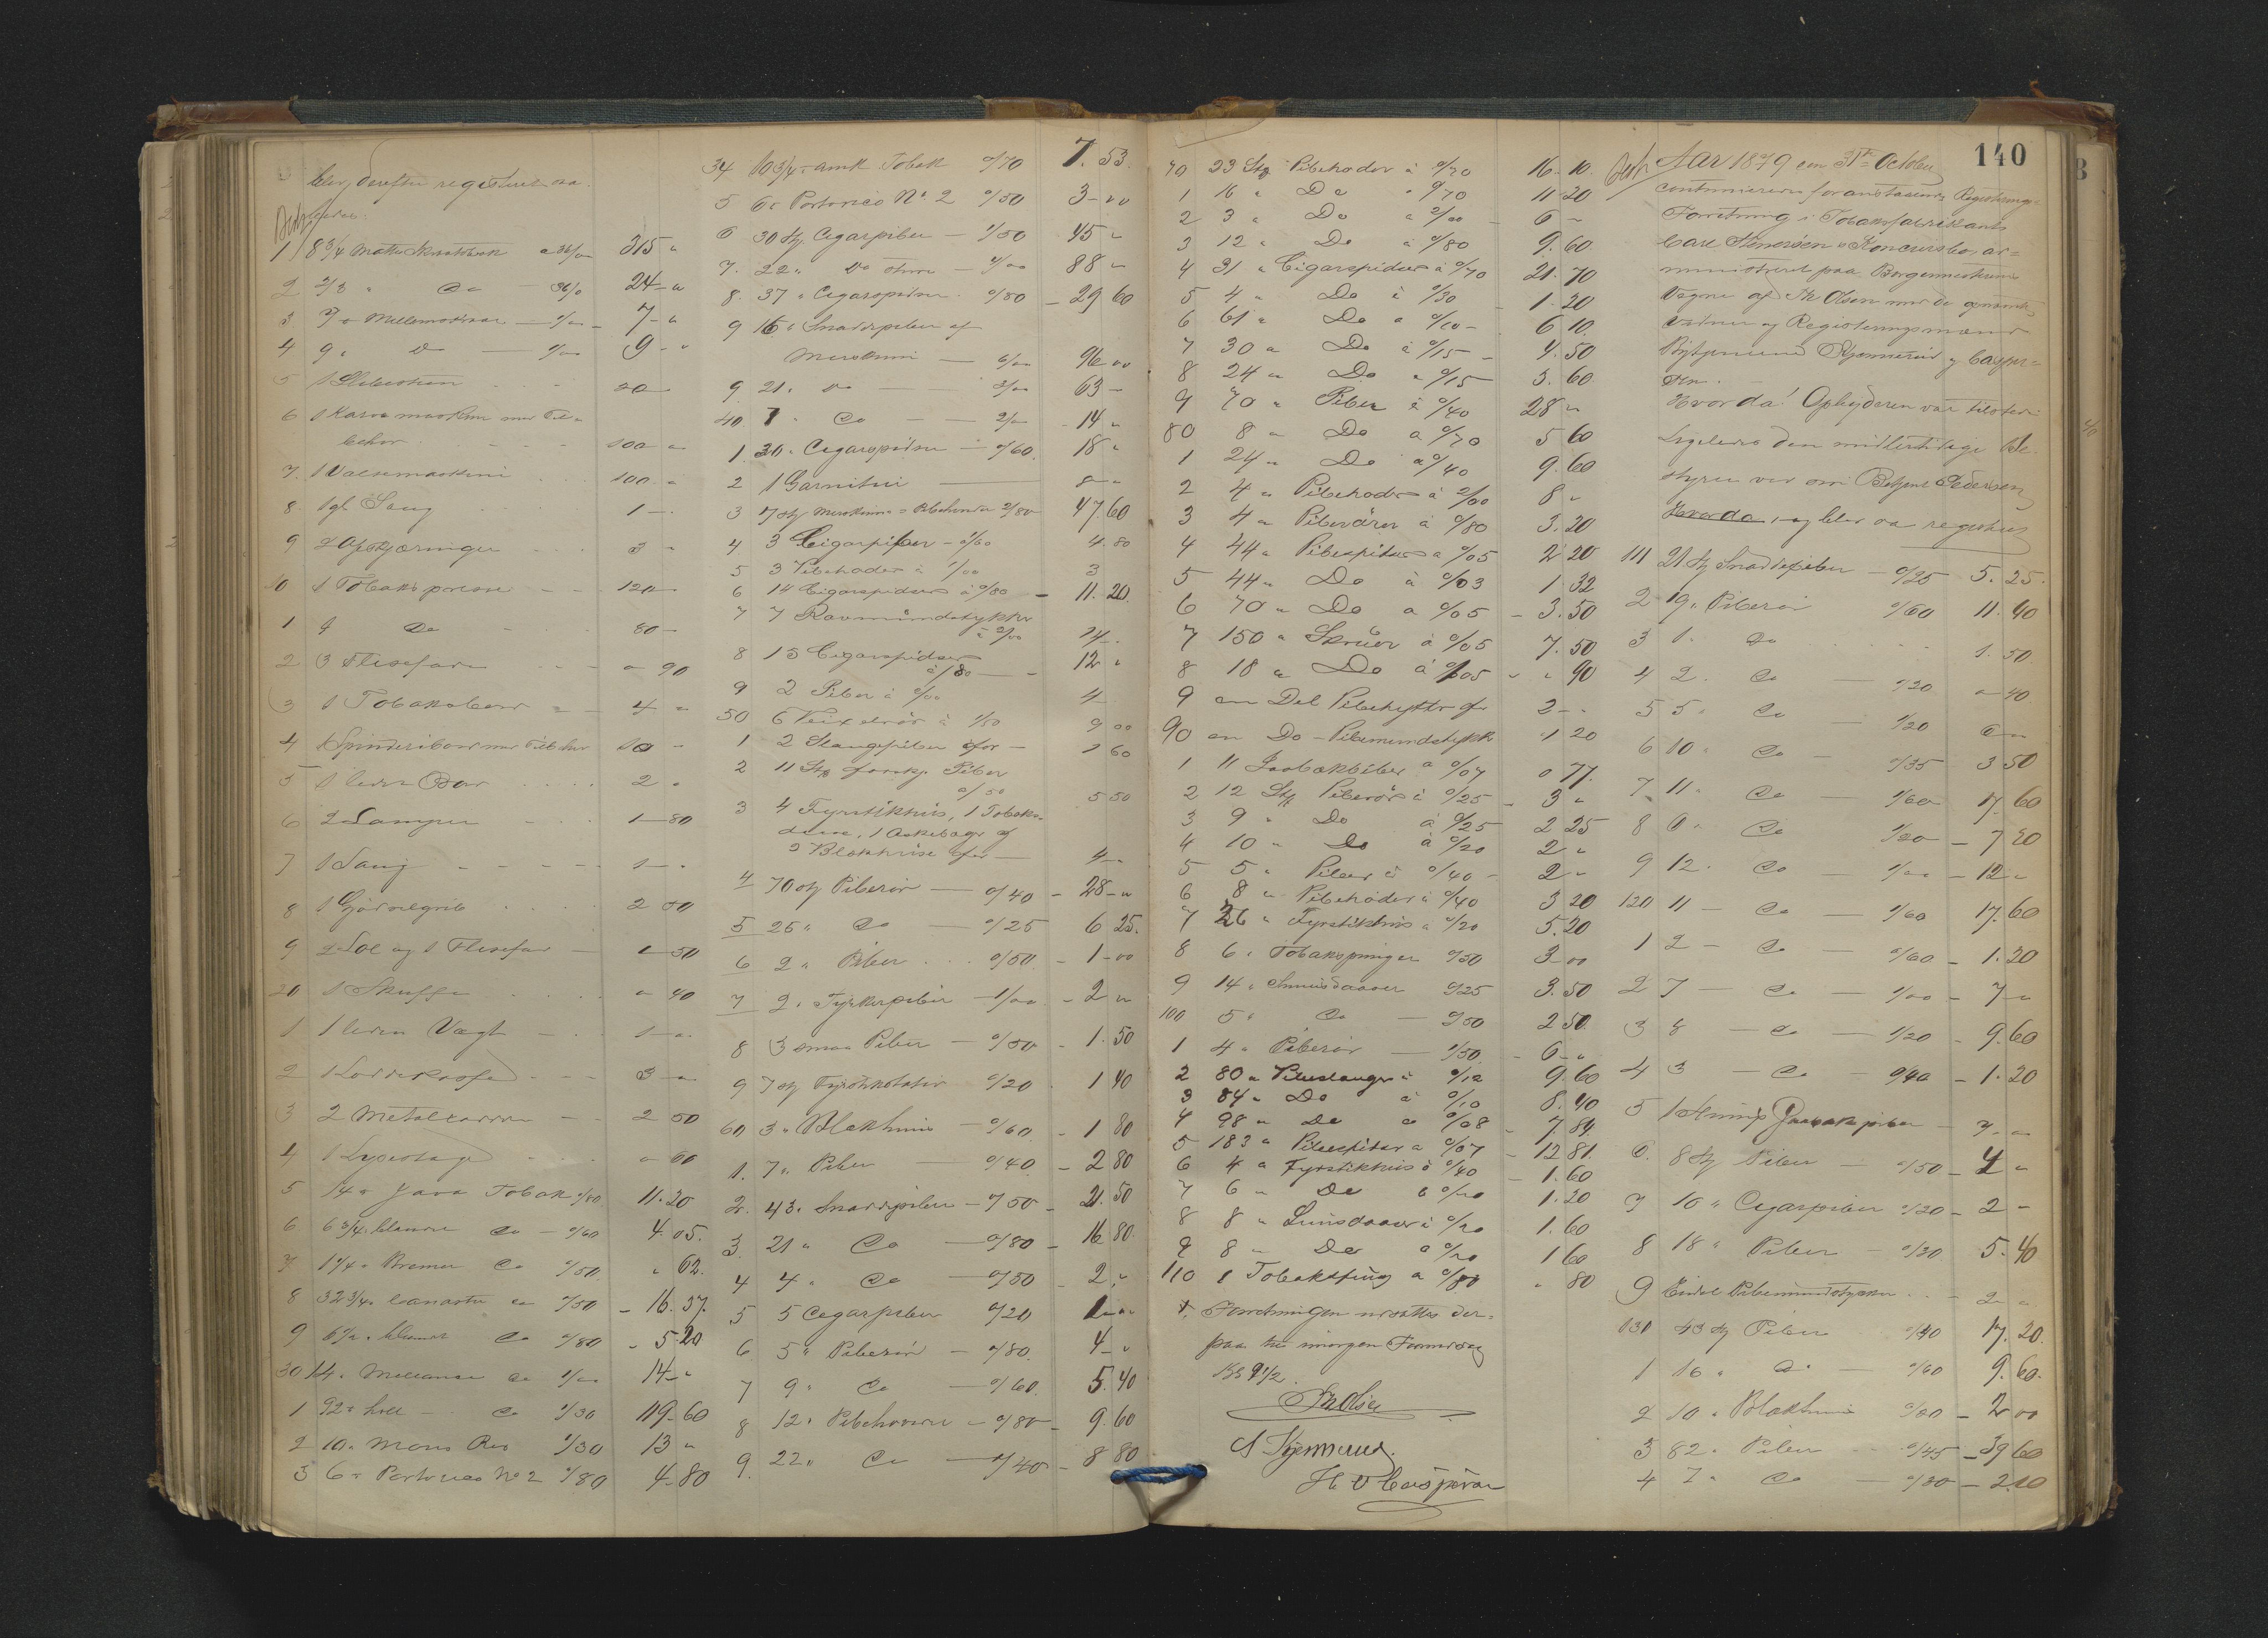 blev derefter registreret saa-
ledes:
1 8 3/4 Matter Skraatobak a 36/00 315 "
2 2/3 " Do — 36/0 24 - "
3 7 " Mellemskraa — 1/00 - 7 - "
4 9 " Do — 1/00 9 - "
5 1 Slibesteen 20 -
6 1 Karve maskine med Til-
behør 100 - "
7. 1 Valsemaskine 100 - "
8 1 gl. Saug 1 -
9 2 Afskjæringer 3 -
10 1 Tobaks presse — 120 -
1 4 Do 80 -
2 3 Flisefade " 90
3 1 Tobaksbord — 4 "
4 1 Spinderibord med Tilbehør 10 -
5 1 liden Do 2 "
6 2 Lamper 1 - 80
7 1 Saug 1 - "
8 1 2 50
9 2 og 1 Flisefad — 1 - 50
20 1 Skuffe " 40
1 1 liden Vægt — 1 - "
2 1 3 - "
3 2 Metal 2 50
4 1 Lysestage " 60
5 14 " Java Tobak 0/80 11. 20
6 6 3/4 " Do — 0/60 4. 05.
7 1 1/4 " Bremer Do 0/50 " 62.
8 32 3/4 " Canaster Do 0/50 - 16. 37.
9 6 1/2 " Do 0/80 - 5. 20
30 14 " Do 1/00 14 - "
1 92 " holl — Do 1/30 119 - 60
2 10 " 1/30 13 "
3 6 " Portorico No 2 0/80 4 - 80
34 10 3/4 " amk Tobak 0/70 7. 53.
5 6 " Portorico No 2 0/50 3 - 00
6 30 stk Cigarpiber — 1/50 45 "
7. 22 " Do store — 4/00 88 "
8. 37 " Cigarspidser 0/80 - 29 60
9 16 " Snaddepiber af
Merskum — 6/00 96 00
9. 21 " Do — 3/00 63 -
40. 7 " Do — 2/00 - 14 "
1. 30 " Cigarspidser — 0/60. 18 "
2 1 Garnitur — 8 - "
3 17 stk Merskums = Pibehoder 2/80 47. 60
4 3 Cigarpiber - 1/60 4. 80
5 3 Pibehoder à 1/00 3
6 14 Cigarspidser à 0/80 — 11. 20.
7 7 Ravmundstykker
à 2/00 14 - .
8 15 Cigarspidser
à 0/80 — 12 "
9 2 Piber à 2/00 4 -
50 6 Veixelrör à 1/50 9 00
1 2 Slangepiber for — 1 60
2 11 Stk forskj. Piber
0/50 5 50
3 4 Fyrstikhus, 1 Tobaks-
daase, 1 Askebæger og
2 Blokhuse for — 4 -
4 70 stk Piberör — 0/40 - 28 - "
5 25 " Do — 0/25 6 25.
6 2 " Piber . . . 0/50 - 1 - 00
7 2 " Tyrkerpiber — 1/00 - 2 "
8 3 smaa Piber — 0/50 - 1. 50
9 7 stk 0/20 1 40
60 3 " Blokhuse — 0/60 - 1 80
1. 7 " Piber — 0/40. - 2 80
2. 43 " Snaddepiber — 0/50 - 21. 50
3. 21 " Do — 0/80 - 16 80.
4 4 " Do — 0/50 - 2. "
5 5 Cigarpiber 0/20 1 - 00
6 5 " Piberör — 0/80. 4 - "
7 9 " Do — 0/60. 5. 40
8 12 " Pibehoveder — 0/80 - 9. 60
9. 22 " Do — 0/40 - 8 80
70 23 Stk Pibehoder à 0/70 16. 10.
1 16 " Do " 0/70 11 20
2 3 " Do à 2/00 - 6 -
3 12 " Do à 0/80 9. 60.
4 31 " Cigarspidser à 0/70 21. 70
5 4 " Do à 0/30 - 1. 20
6 61 " Do à 0/10 - 6 10.
7 30 " Do à 0/15 - 4. 50
8 24 " Do à 0/15 3. 60
9 70 " Piber à 0/40 28 "
80 8 " Do à 0/70 5 60
1 24 " Do à 0/40 9. 60
2 4 " Pibehoder à 2/00 8 "
3 4 " Piberörer à 0/80 3. 20
4 44 " Pibespidser à 0/05 2 20
5 44 " Do à 0/03 1 32
6 70 " Do à 0/05 - 3. 50
7 150 " Skruer à 0/05 7. 50
8 18 " Do à 0/05 - " 90
9 en Del Pibehytter for 2 - -
90 en Do - Pibemundstykk 1 20
1 11 à 0/07 0 77.
2 12 Stk Piberör à 0/25 - 3 "
3 9 " Do à 0/25 2 25
4 10 " Do à 0/20 2 "
5 5 " Piber à 0/40 - 2 "
6 8 " Pibehoder à 0/40 3 20
7 26 " Fyrstikhus à 0/20 5. 20
8 6 " Tobakspunger 0/50 3 00
9 14 " Snuusdaaser 0/25 3. 50
100 5 " Do — 0/50 2 50.
1 4 " Piberör — 1/50 - 6 - "
2 80 " Pibeslanger à 0/12 9. 60
3 84 " Do à 0/10 8. 40
4 98 " Do à 0/08 - 7 84.
5 183 " Pibespidser à 0/07 - 12 81.
6 4 " Fyrstikhus à 0/40 - 1. 60
7 6 " Do à 0/20 1. 20
8 8 " Snusdaaser à 0/20 1. 60
9 8 " Do à 0/20 1 60
110 1 Tobaks à 0/80 " 80
Forretningen udsattes der-
paa til imorgen Formiddag
Kl 9 1/2.
Th Olsen
A Kjennerud.
H O Caspersen
140
Aar 1879 den 31te October
continueredes foranstaaende Registrerings-
Forretning i Tobaksfabrikant
Carl Simonsen's Konkursbo, ad-
ministreret paa Borgermesterens
Vegne af Th Olsen med de ovennævnte
Vidner og Registreringsmænd
Kjennerud og Casper-
sen.
Hvorda! Opbyderen var tilstede
Ligeledes den midlertidige Be-
styrer ved Betjent Pedersen
Hvorda, og blev saa registreret
111 21 stk Snaddepiber — 0/25 5. 25.
2 19 " Piberör 0/60 11. 40
3 1 " Do 1. 50
4 2 " Do — 0/20 " 40
5 5 " Do — 1/20 6 "
6 10 " Do — 0/35 3 50
7 11 " Do — 1/60 17. 60
8 6 " Do 1/20 - 7 20
9 12 " Do — 1/00 - 12 "
120 11 — Do — 1/60 17. 60
1 2 — Do — 0/60 - 1. 20
2 7 — Do — 1/00 - 7 "
3 8 — Do — 1/20 - 9. 60
4 3 — Do — 0/40 - 1. 20
5
6. 8 stk Piber — 0/50 - 4 "
7 10 " Cigarpiber 0/20 - 2 -
8 18 " Piber — 0/30 5. 40
9 Endel Pibemundstykker 2 "
130 43 stk Piber 0/40 17. 20.
1 16 " Do — 0/60 9. 60.
2 10 " Blokhuse 0/20 - 2 00
3 82 " Piber 0/45 - 39 60
4 7 " Do — 0/30 - 2. 10